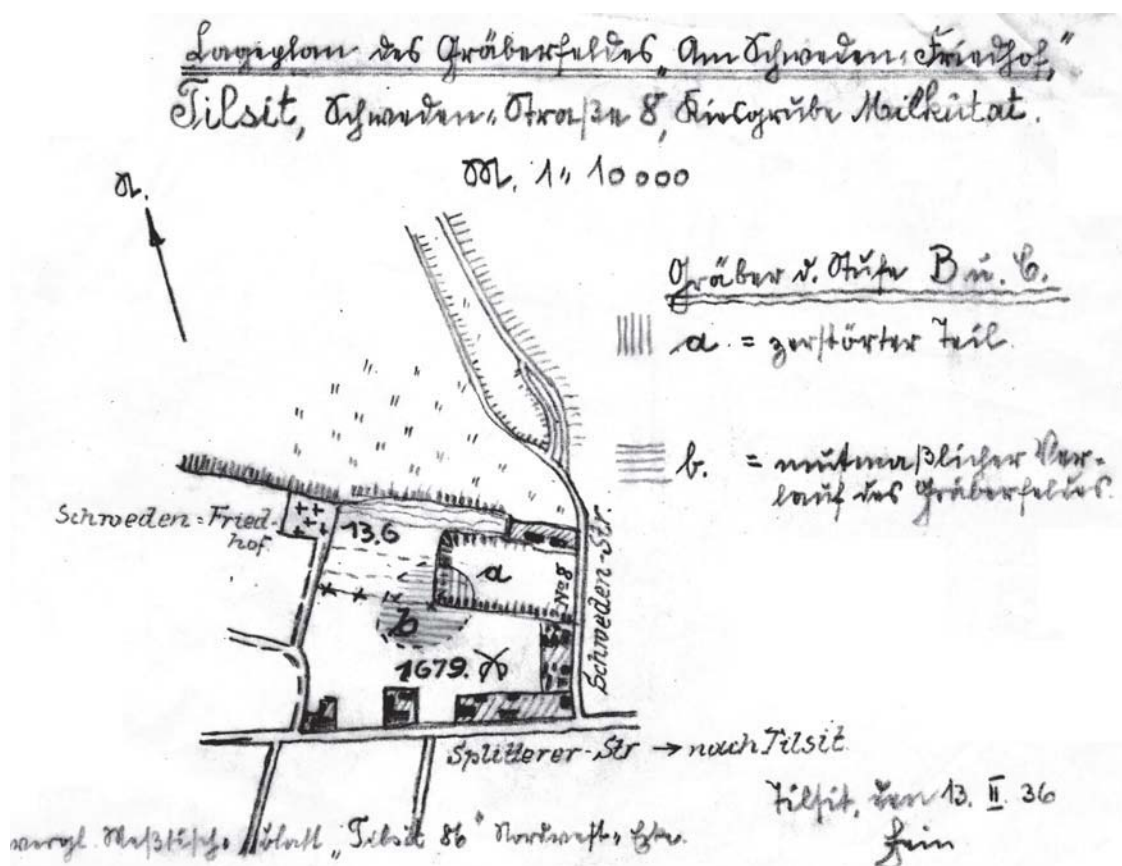 Lageplan des Gräberfeldes „Am Schweden-Friedhof,"
Tilsit, Schweden-Straße 8, Kiesgrube Milkutat.
M. 1:10000
N.
Gräber d. Stufe B u. C.
a = zerstörter Teil.
b. = mutmaßlicher Ver-
lauf des Gräberfeldes.
Schweden-Fried-
hof.
13.6
a
No 8
Schweden-Str.
b
1679.
Splitterer-Str → nach Tilsit
Tilsit, den 13. II. 36
vergl. Meßtisch-Blatt „Tilsit 86" Nordwest-Ecke.